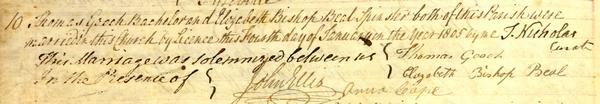 10 Thomas Geach Bachelor and Elizabeth Bishop Beal Spinster both of this Parish were
married in this Church by Licence this fourth day of January in the Year 1805 by me T. Nicholas
Curate
This Marriage was solemnized between us } Thomas Geach
In the Presence of } Elizabeth Bishop Beal
John Ellis
Anna Cope